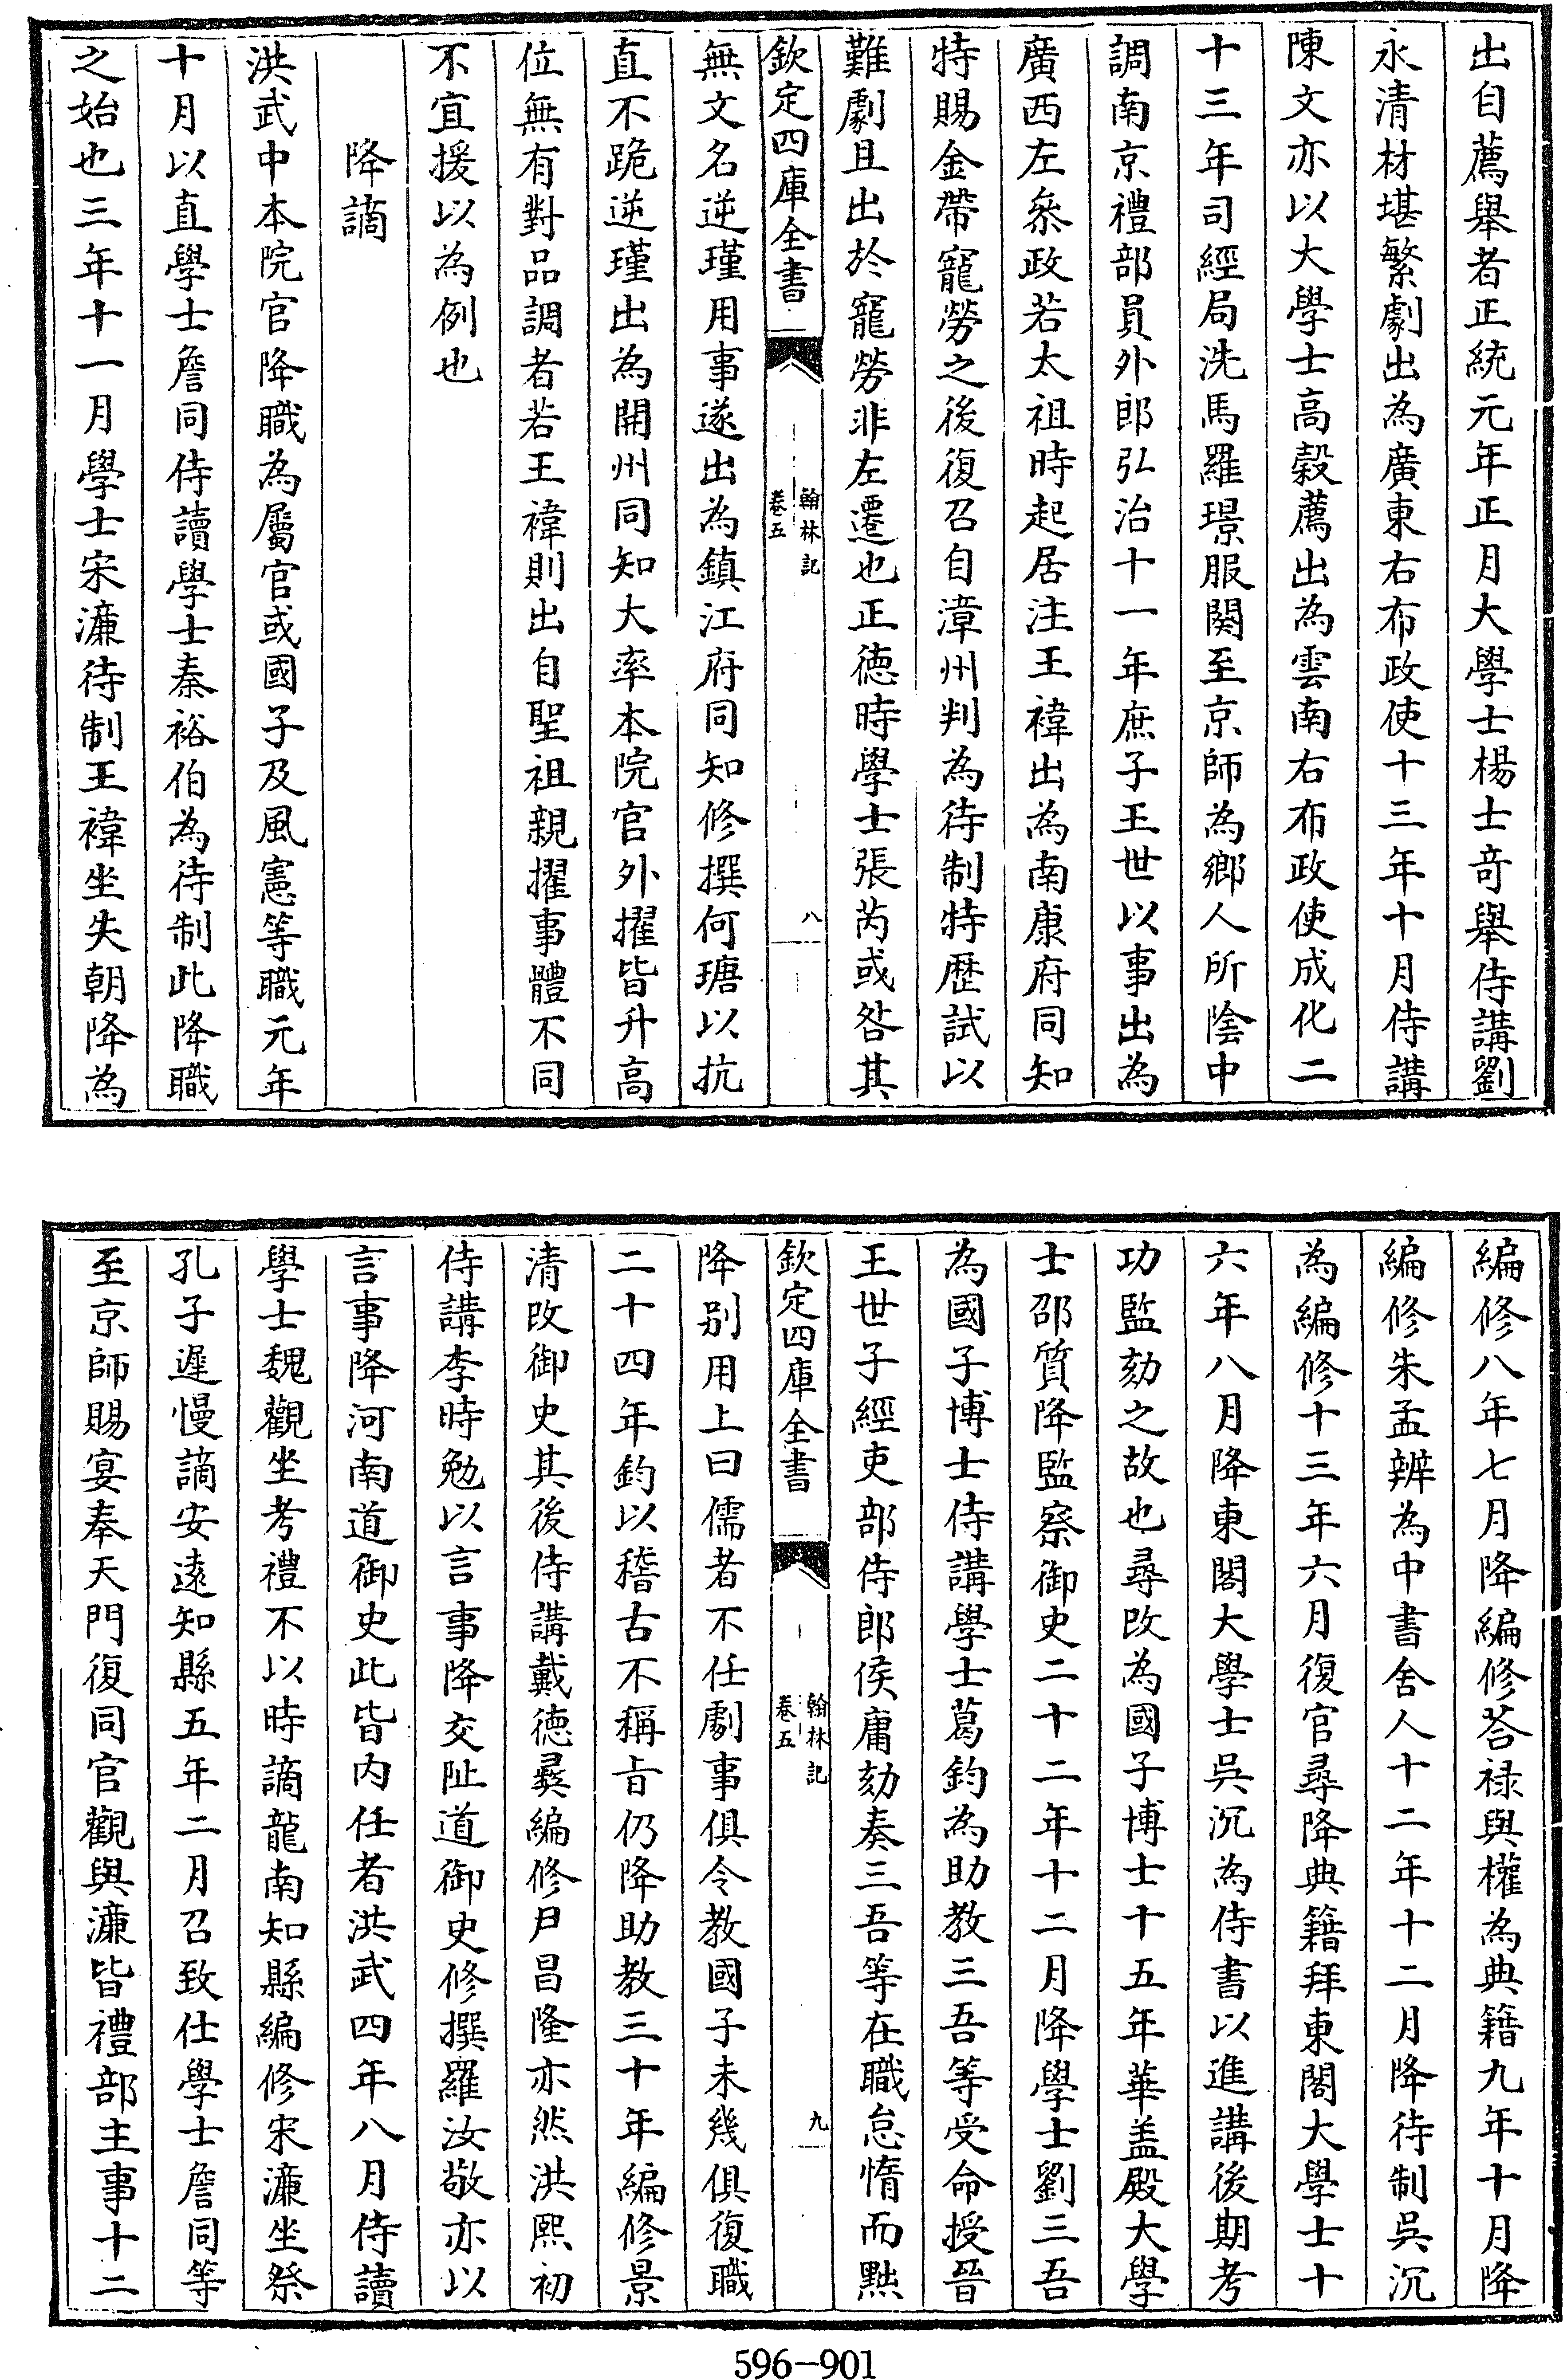 出自薦舉者正統元年正月大學士楊士竒舉侍講劉
永清材堪繁劇出為廣東右布政使十三年十月侍講
陳文亦以大學士高穀薦出為雲南右布政使成化二
十三年司經局洗馬羅璟服闋至京師為鄉人所陰中
調南京禮部員外郎弘治十一年庶子王世以事出為
廣西左叅政若太祖時起居注王禕出為南康府同知
特賜金帶寵勞之後復召自漳州判為待制特歴試以
難劇且出於寵勞非左遷也正徳時學士張芮或咎其
欽定四庫全書
翰林記
卷五
八
無文名逆瑾用事遂出為鎮江府同知修撰何瑭以抗
直不跪逆瑾出為開州同知大率本院官外擢皆升高
位無有對品調者若王禕則出自聖祖親擢事體不同
不宜援以為例也
降謫
洪武中本院官降職為屬官或國子及風憲等職元年
十月以直學士詹同侍讀學士秦裕伯為待制此降職
之始也三年十一月學士宋濂待制王禕坐失朝降為
編修八年七月降編修荅禄與權為典籍九年十月降
編修朱孟辨為中書舍人十二年十二月降待制吳沉
為編修十三年六月復官尋降典籍拜東閣大學士十
六年八月降東閣大學士吳沉為侍書以進講後期考
功監劾之故也尋改為國子博士十五年華盖殿大學
士邵質降監察御史二十二年十二月降學士劉三吾
為國子博士侍講學士葛鈞為助教三吾等受命授晉
王世子經吏部侍郎侯庸劾奏三吾等在職怠惰而黜
欽定四庫全書
翰林記
卷五
九
降别用上曰儒者不任劇事俱令教國子未幾俱復職
二十四年鈞以稽古不稱旨仍降助教三十年編修景
清改御史其後侍講戴徳彛編修尹昌隆亦然洪熙初
侍講李時勉以言事降交阯道御史修撰羅汝敬亦以
言事降河南道御史此皆内任者洪武四年八月侍讀
學士魏觀坐考禮不以時謫龍南知縣編修宋濂坐祭
孔子遲慢謫安遠知縣五年二月召致仕學士詹同等
至京師賜宴奉天門復同官觀與濂皆禮部主事十二
596-901